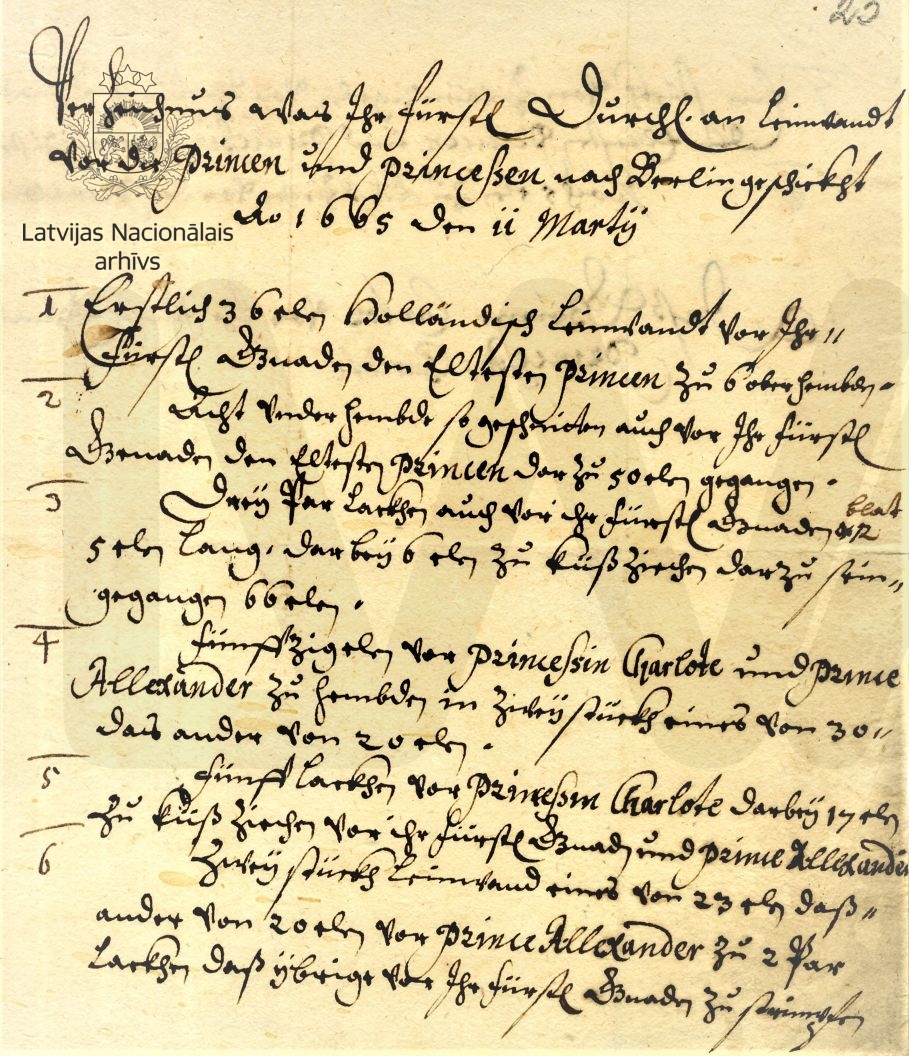 20
Verzeichnus was Ihr Fürstl Durchl. an Leinwandt
vor die Princen und Princeßen nach Berlin geschickht
Ao 1665 den 11 Martÿ
Latvijas Nacionālais
arhīvs
1 Erstlich 36 elen Holländisch Leinwandt vor Ihr
Fürstl Gnaden den Eltesten Princen zu 6 oberhembden
2 Acht Underhembde so geschniten auch vor Ihr Fürstl
Genaden den Eltesten Princen dar zu 50 elen gegangen.
3 Dreÿ Par Lackhen auch vor ihr Fürstl Gnaden blat
5 elen lang, dar beÿ 6 elen zu küßziechen dar zu sein
gegangen 66 elen.
4 Fünffzig elen vor Princeßin Charlote und Prince
Allexander zu hembden in Zweÿ stückh eines von 30
das ander von 20 elen.
5 Fünff Lackhen vor Princeßin Charlote darbeÿ 17 elen
zu küßziechen vor ihr Fürstl Gnad und Prince Allexander
6 Zweÿ stückh Leinwand eines von 23 elen daß
ander von 20 elen vor Prince Allexander zu 2 Par
Lackhen daß übrige vor Ihr Fürstl Gnaden zu strümpfen